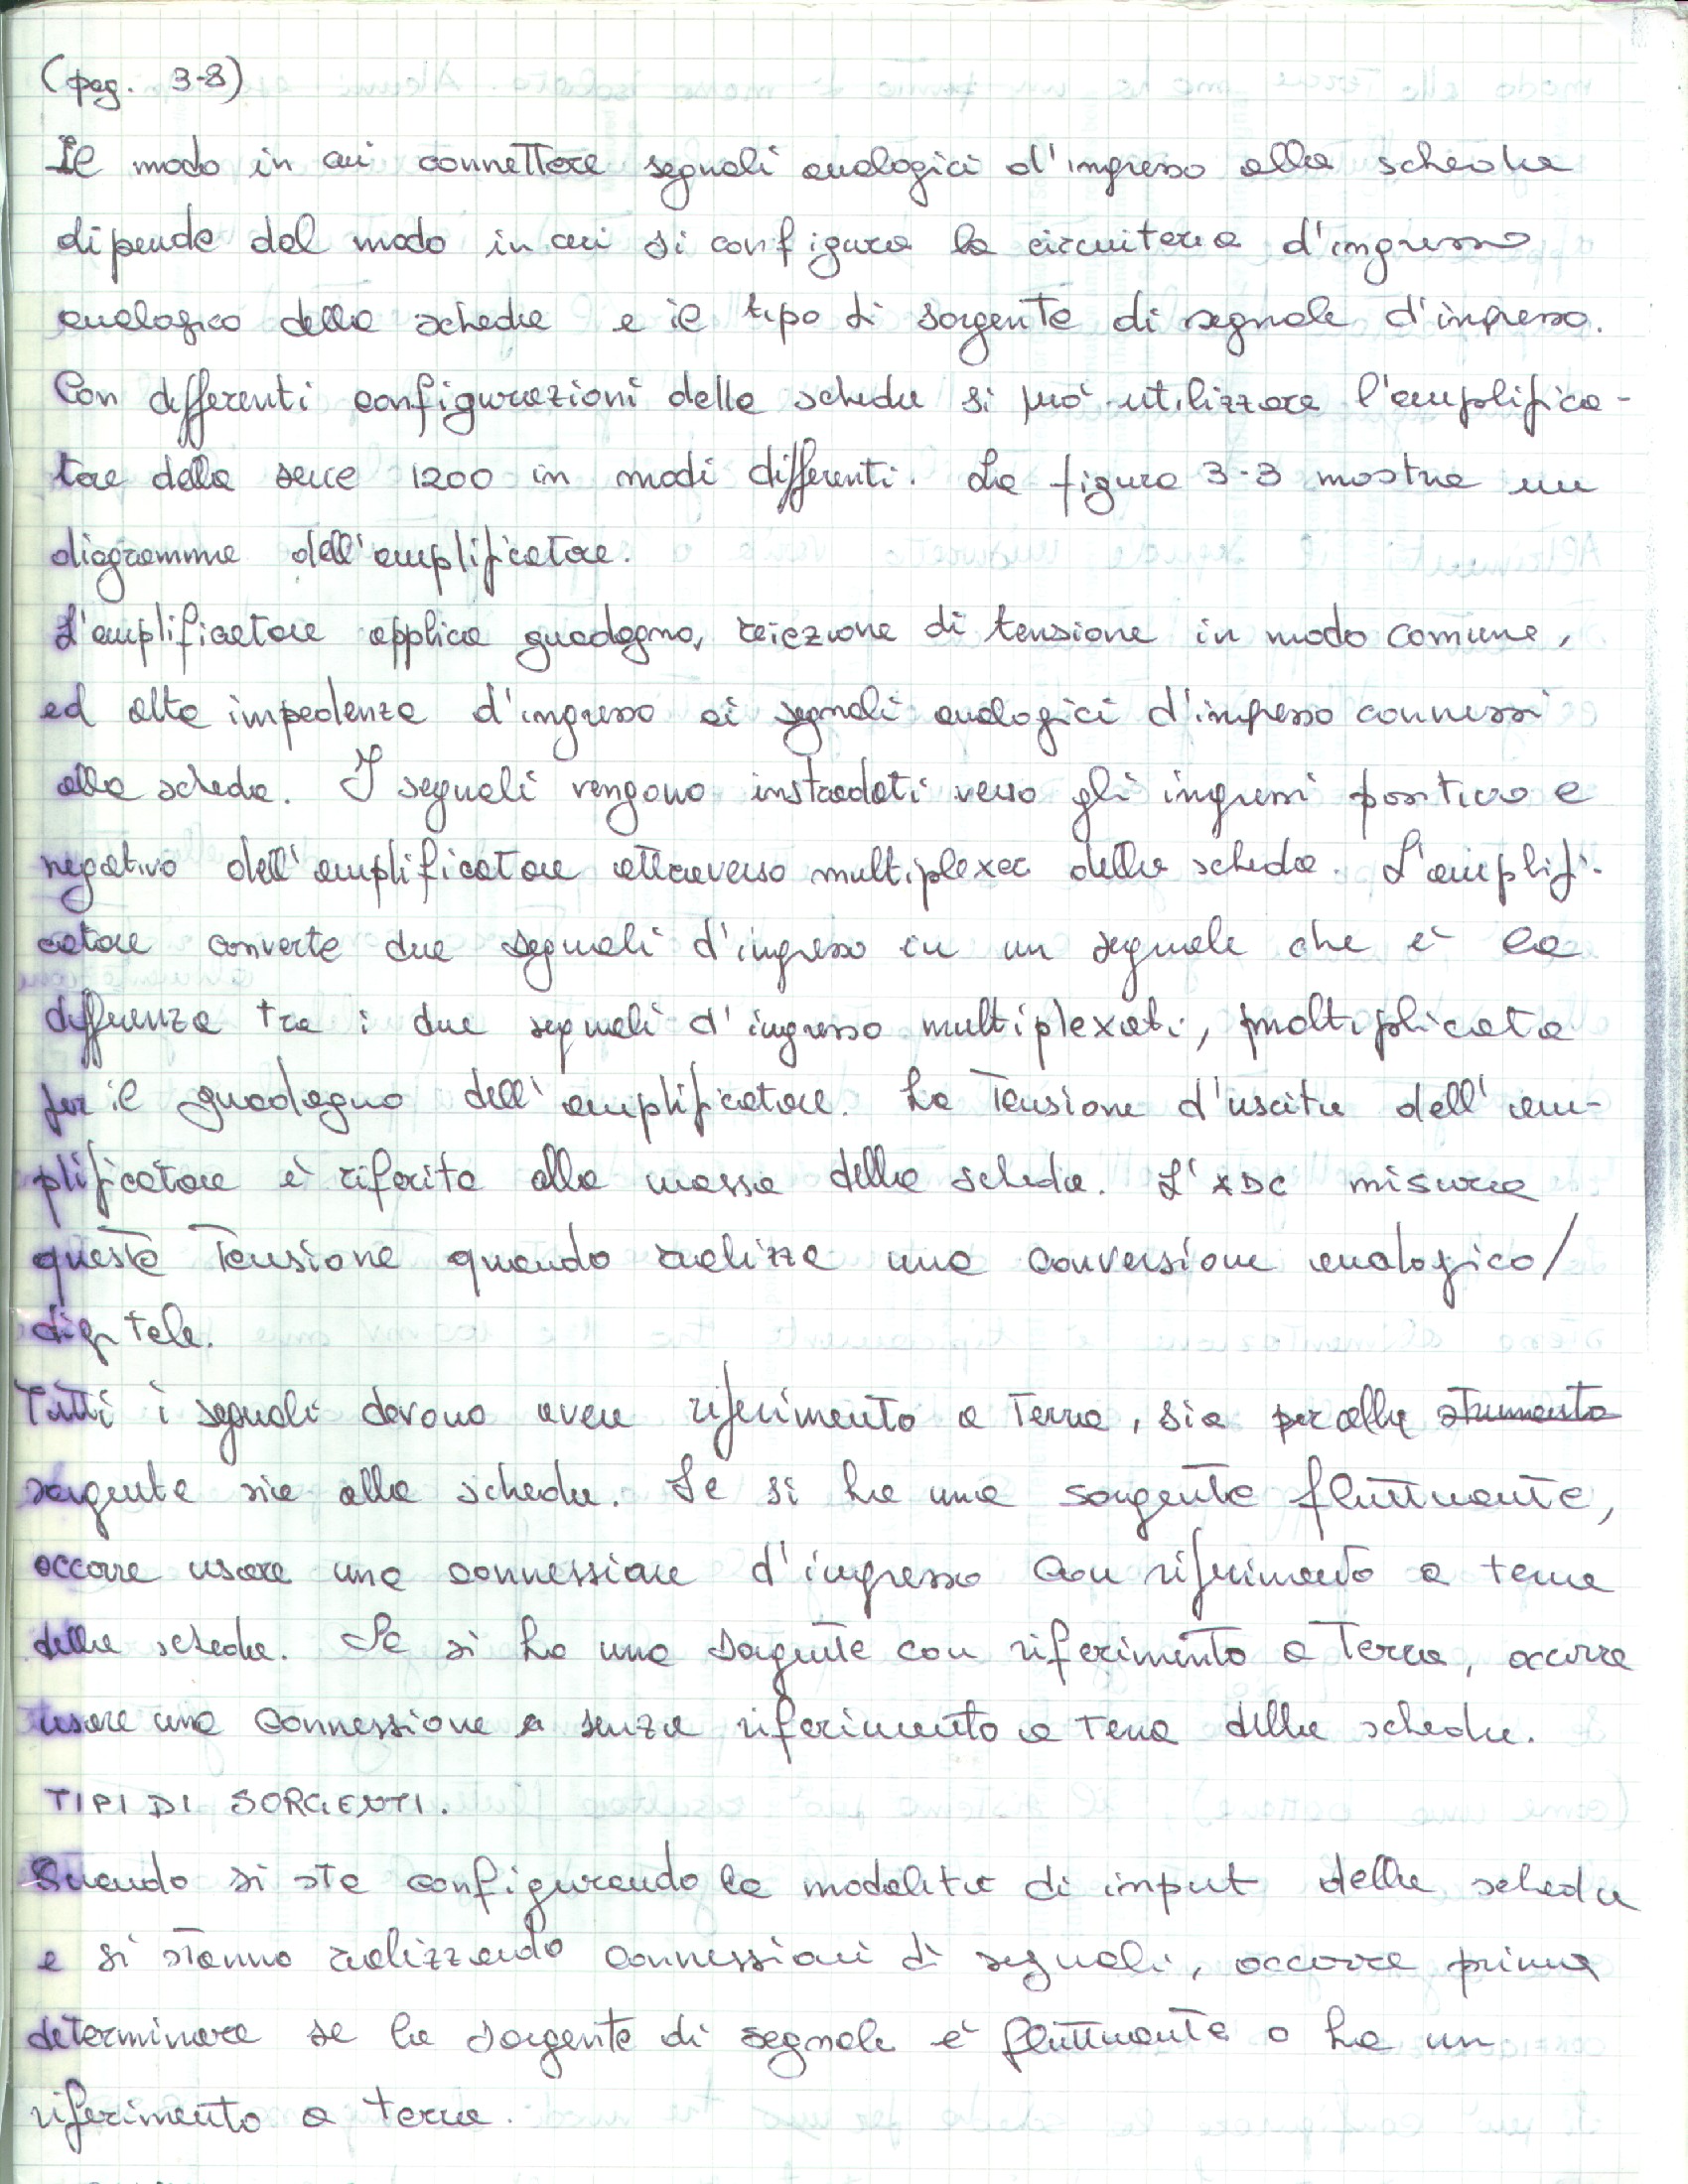 (pag. 3-8)
Il modo in cui connettere segnali analogici d'ingresso alla scheda
dipende dal modo in cui si configura la circuiteria d'ingresso
analogico della scheda e il tipo di sorgente di segnale d'ingresso.
Con differenti configurazioni della scheda si può utilizzare l'amplifica-
tore della serie 1200 in modi differenti. La figura 3-3 mostra un
diagramma dell'amplificatore.
L'amplificatore applica guadagno, reiezione di tensione in modo comune,
ed alta impedenza d'ingresso ai segnali analogici d'ingresso connessi
alla scheda. I segnali vengono instradati verso gli ingressi positivo e
negativo dell'amplificatore attraverso multiplexer della scheda. L'amplifi-
catore converte due segnali d'ingresso in un segnale che è la
differenza tra i due segnali d'ingresso multiplexati, moltiplicata
per il guadagno dell'amplificatore. La Tensione d'uscita dell'am-
plificatore è riferita alla massa della scheda. L'ADC misura
questa Tensione quando realizza una conversione analogico/
digitale.
Tutti i segnali devono avere riferimento a Terra, sia alla strumento
sorgente sia alla scheda. Se si ha una sorgente fluttuante,
occorre usare una connessione d'ingresso con riferimento a terra
della scheda. Se si ha una sorgente con riferimento a Terra, occorre
usare una connessione senza riferimento a Terra della scheda.
TIPI DI SORGENTI.
Quando si sta configurando la modalità di input della scheda
e si stanno realizzando connessioni di segnali, occorre prima
determinare se la sorgente di segnale è fluttuante o ha un
riferimento a terra.